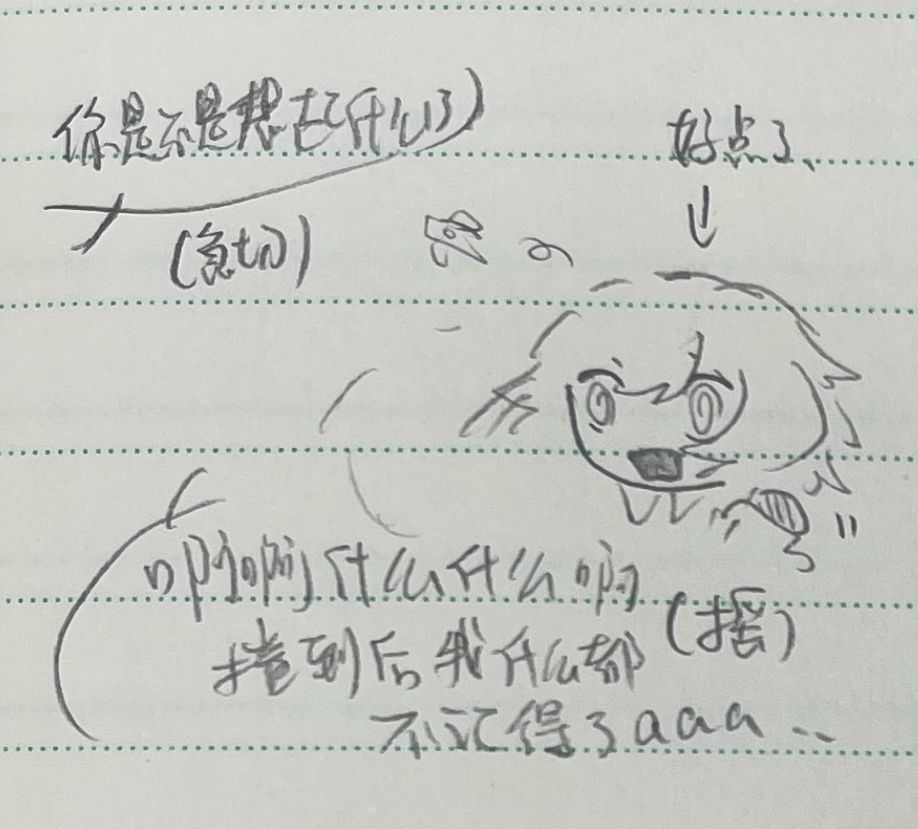 你是不是想起什么了
(急切)
好点了
啊啊什么什么啊
撞到后我什么都
(摇)
不记得了aaa..